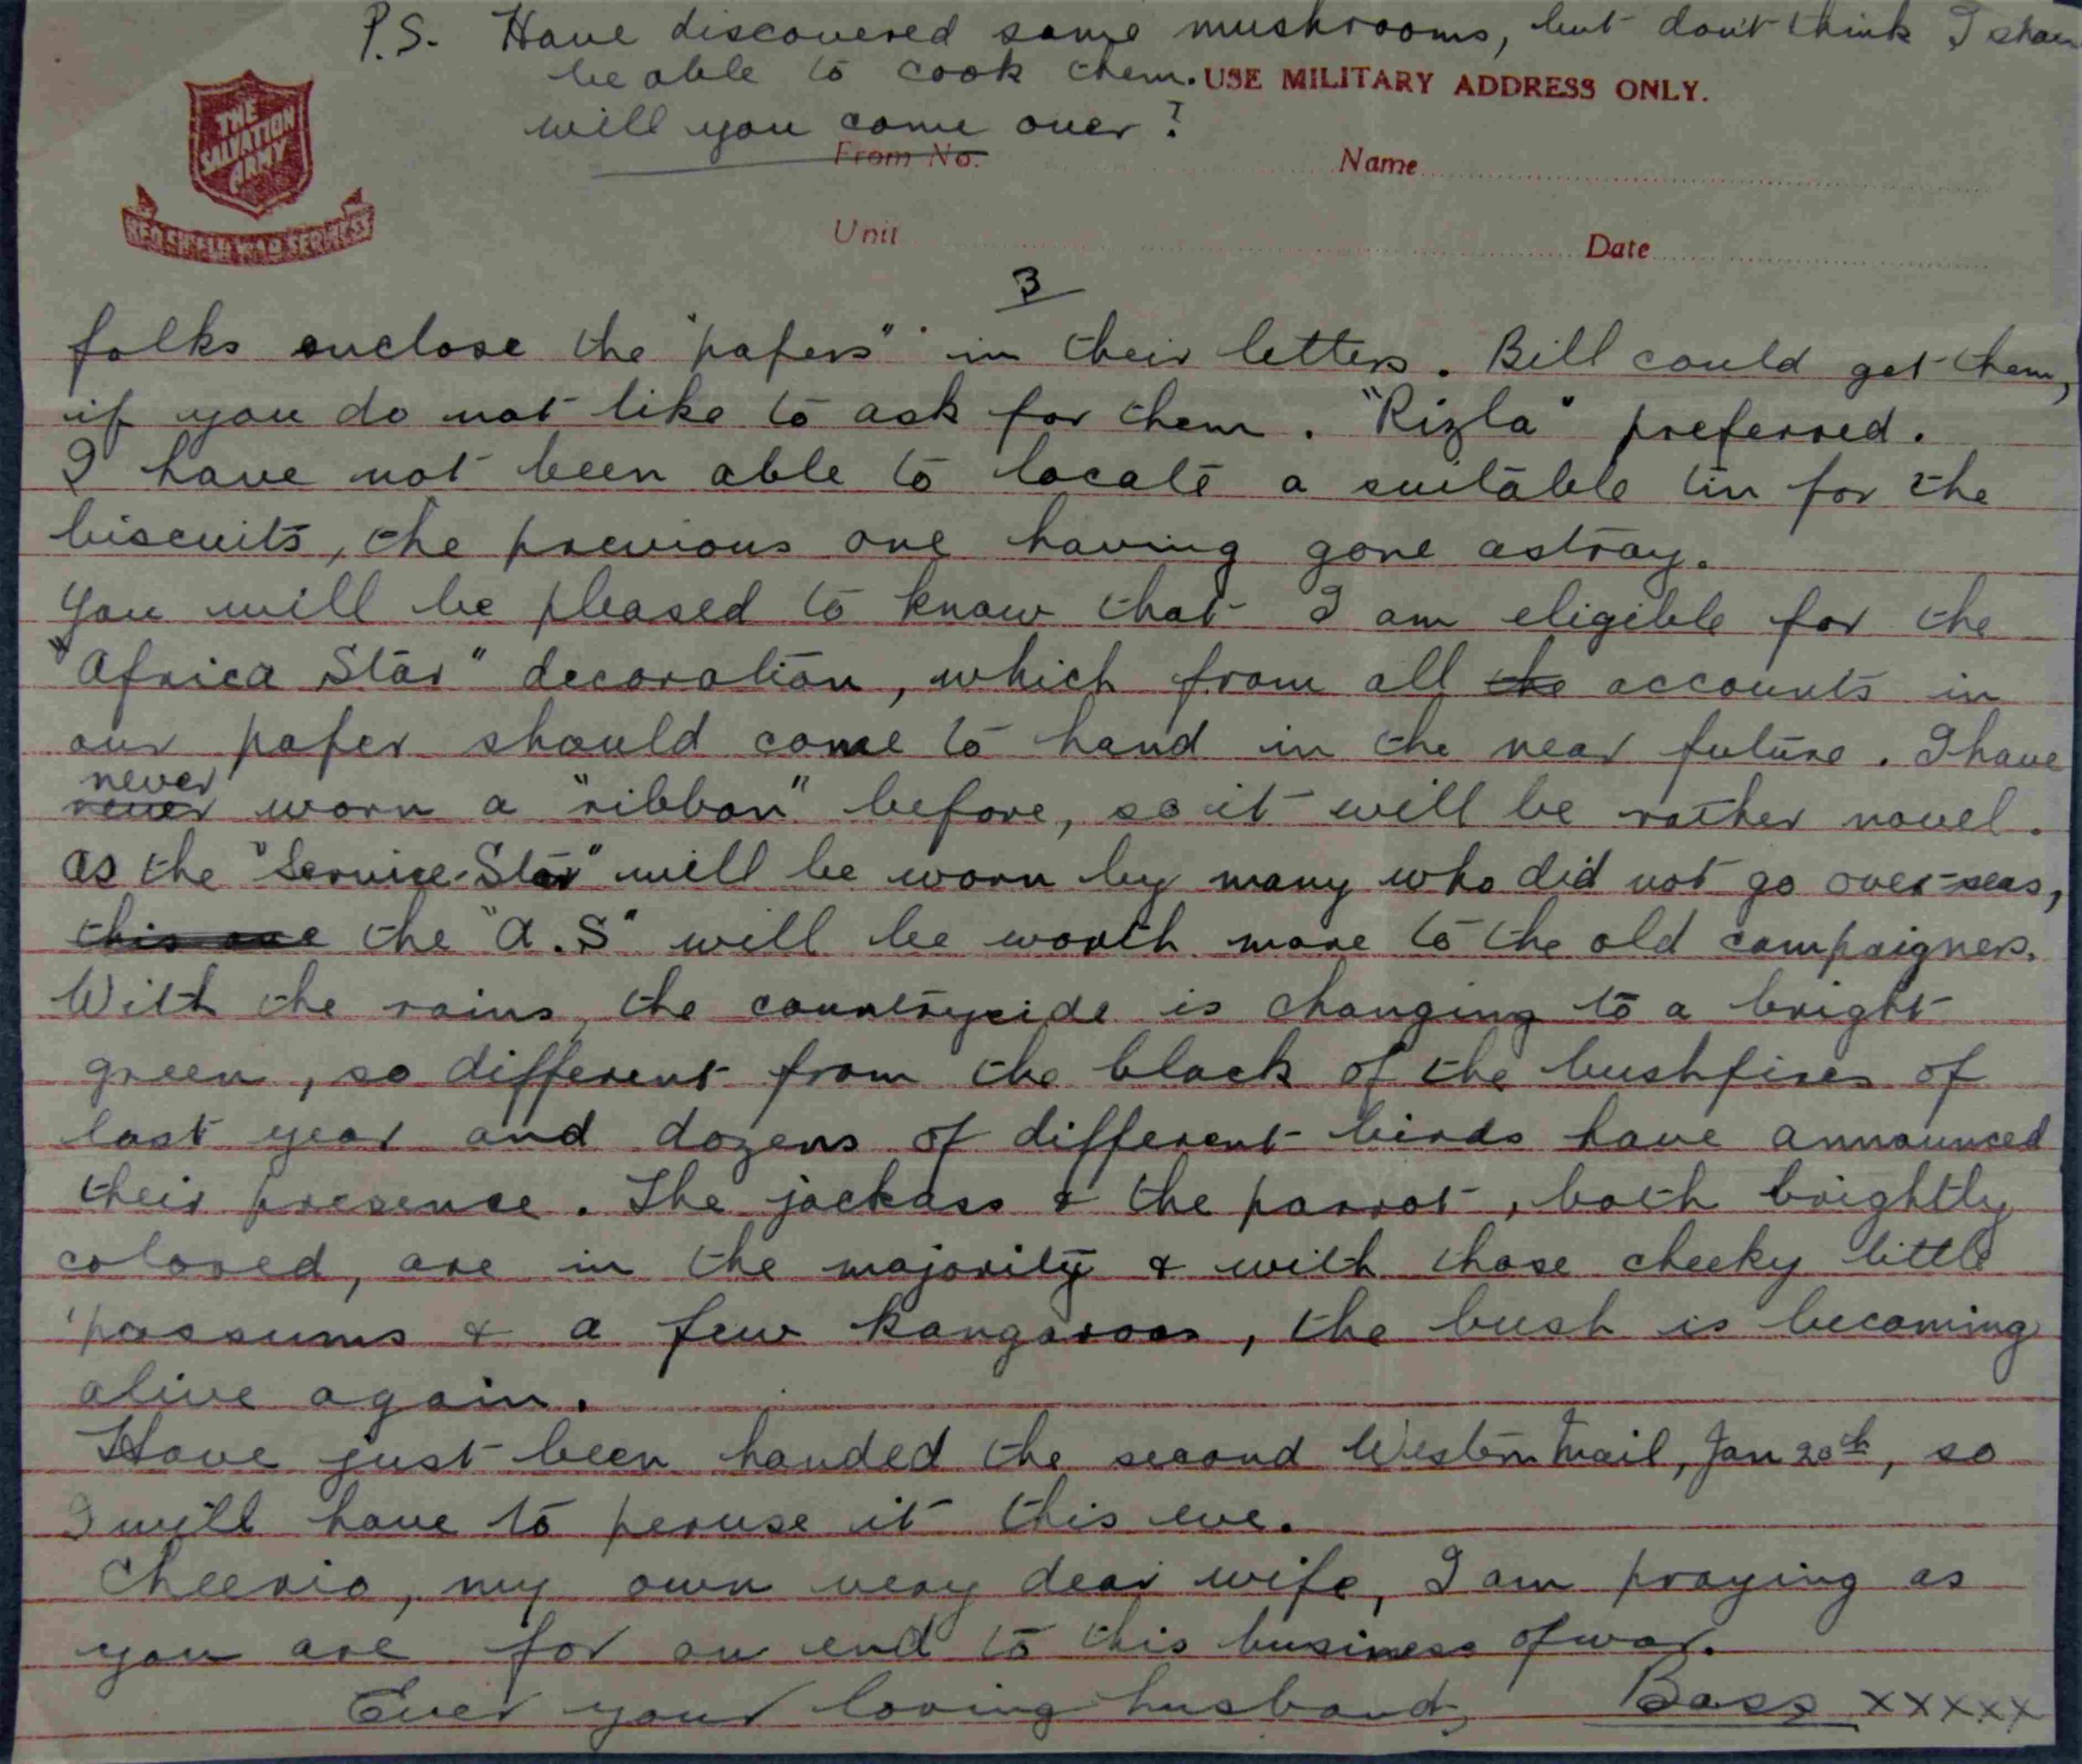 P.S. Have discovered some mushrooms, but don't think I shall
be able to cook them.
USE MILITARY ADDRESS ONLY.
will you come over?
THE
SALVATION
ARMY
RED SHIELD WAR SERVICES
From No. Name
Unit Date
3
folks enclose the "papers" in their letters. Bill could get them,
if you do not like to ask for them. "Rizla" preferred.
I have not been able to locate a suitable tin for the
biscuits, the previous one having gone astray.
You will be pleased to know that I am eligible for the
"Africa Star" decoration, which from all the accounts in
our paper should come to hand in the near future. I have
never
never worn a "ribbon" before, so it will be rather novel.
As the "Service-Star" will be worn by many who did not go over-seas,
this one the "A.S" will be worth more to the old campaigners.
With the rains, the countryside is changing to a bright
green, so different from the black of the bushfires of
last year and dozens of different birds have announced
their presence. The jackass & the parrot, both brightly
colored, are in the majority & with those cheeky little
'possums & a few kangaroos, the bush is becoming
alive again.
Have just been handed the second Western Mail, Jan 20th, so
I will have to peruse it this eve.
Cheerio, my own very dear wife, I am praying as
you are for an end to this business of war.
Ever your loving husband, Boss xxxxx